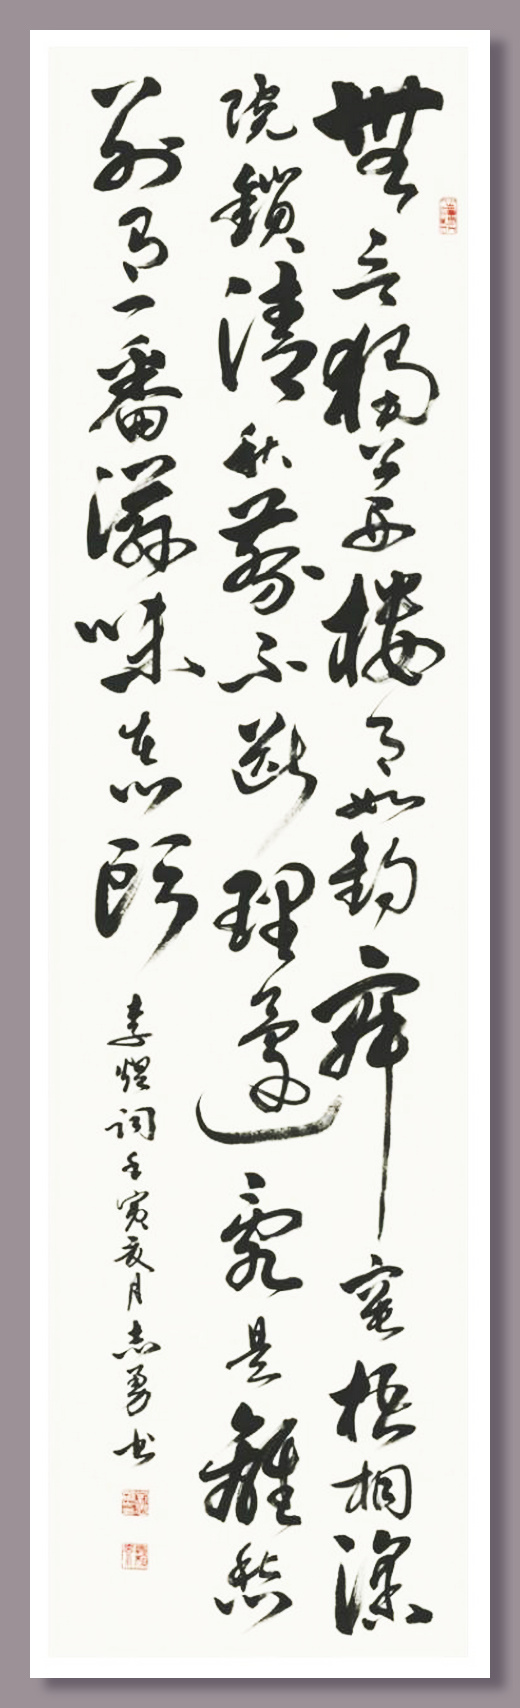 無言獨上西樓月如鈎寂寞梧桐深
院鎖清秋剪不斷理還亂是離愁
別有一番滋味在心頭
李煜詞壬寅夏月志勇书